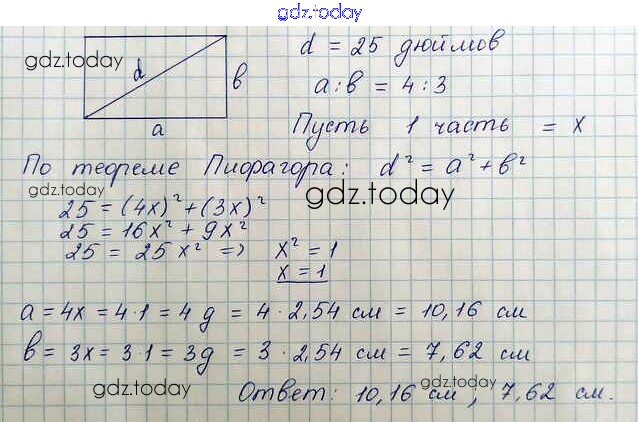 gdz.today
d = 25 дюймов
gdz.today
d
в
a
a : в = 4 : 3
Пусть 1 часть = x
По теореме Пиорагора: d² = a² + в²
gdz.today
25 = (4x)² + (3x)²
gdz.today
25 = 16x² + 9x²
25 = 25x² => x² = 1
x = 1
a = 4x = 4·1 = 4 д = 4 · 2,54 см = 10,16 см
в = 3x = 3·1 = 3д = 3 · 2,54 см = 7,62 см
gdz.today
gdz.today
Ответ: 10,16 см, 7,62 см.